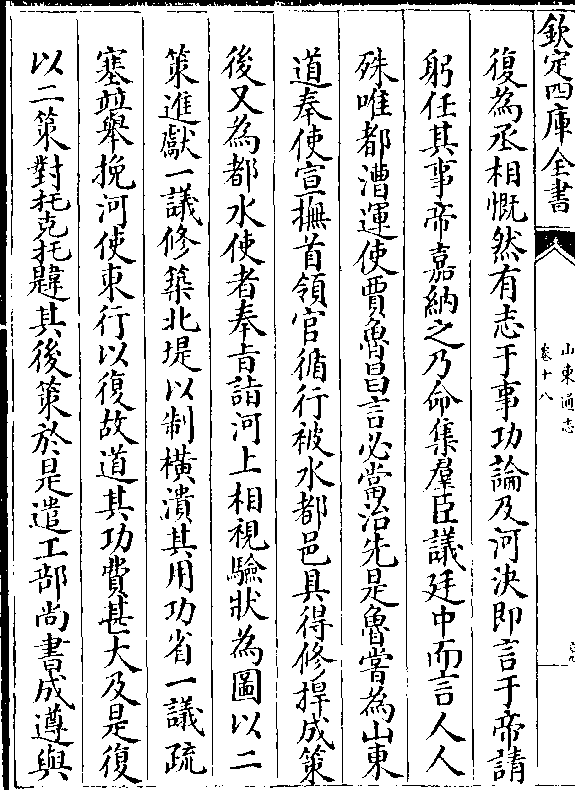 欽定四庫全書
山東通志
卷十八
復為丞相慨然有志于事功論及河決即言于帝請
躬任其事帝嘉納之乃命集羣臣議廷中而言人人
殊唯都漕運使賈魯昌言必當治先是魯嘗為山東
道奉使宣撫首領官循行被水都邑具得修捍成策
後又為都水使者奉㫖詣河上相視驗狀為圖以二
策進獻一議修築北堤以制橫潰其用功省一議疏
塞並舉挽河使東行以復故道其功費甚大及是復
以二策對托克托韙其後策於是遣工部尚書成遵與